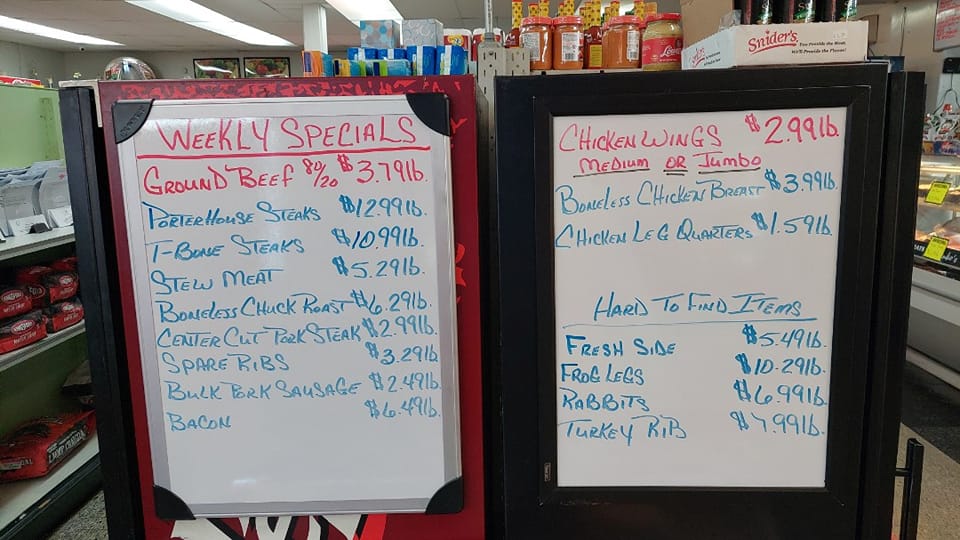 WEEKLY SPECIALS
GROUND BEEF 80/20 $3.79lb.
PORTERHOUSE STEAKS $12.99lb.
T-BONE STEAKS $10.99lb.
STEW MEAT $5.29lb.
BONELESS CHUCK ROAST $6.29lb.
CENTER CUT PORK STEAK $2.99lb.
SPARE RIBS $3.29lb.
BULK PORK SAUSAGE $2.49lb.
BACON $6.49lb.
Snider's
You Provide the Meat,
We'll Provide the Flavor!
CHICKEN WINGS $2.99lb.
MEDIUM OR JUMBO
BONELESS CHICKEN BREAST $3.99lb.
CHICKEN LEG QUARTERS $1.59lb.
HARD TO FIND ITEMS
FRESH SIDE $5.49lb.
FROG LEGS $10.29lb.
RABBITS $6.99lb.
TURKEY RIB $7.99lb.